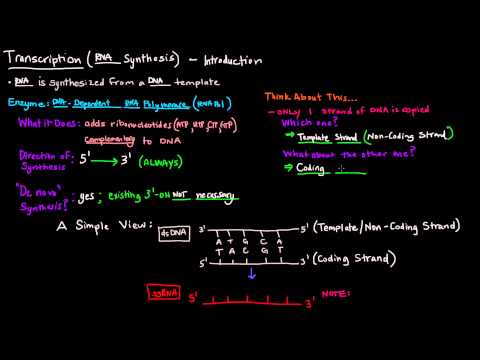 Transcription (RNA Synthesis) – Introduction
• RNA is synthesized from a DNA template
Enzyme: DNA - Dependent RNA Polymerase (RNA Pol)
What it Does: adds ribonucleotides (ATP, UTP, CTP, GTP)
complementary to DNA
Direction of Synthesis: 5' → 3' (ALWAYS)
"De novo" Synthesis?: yes; existing 3'-OH NOT necessary
Think About This...
- ONLY 1 strand of DNA is copied
Which one?
⇒ Template Strand (Non-Coding Strand)
What about the other one?
⇒ Coding
A Simple View:
dsDNA
3' 5' (Template/Non-Coding Strand)
A T G C A
T A C G T
5' 3' (Coding Strand)
ssRNA
5' 3'
NOTE: